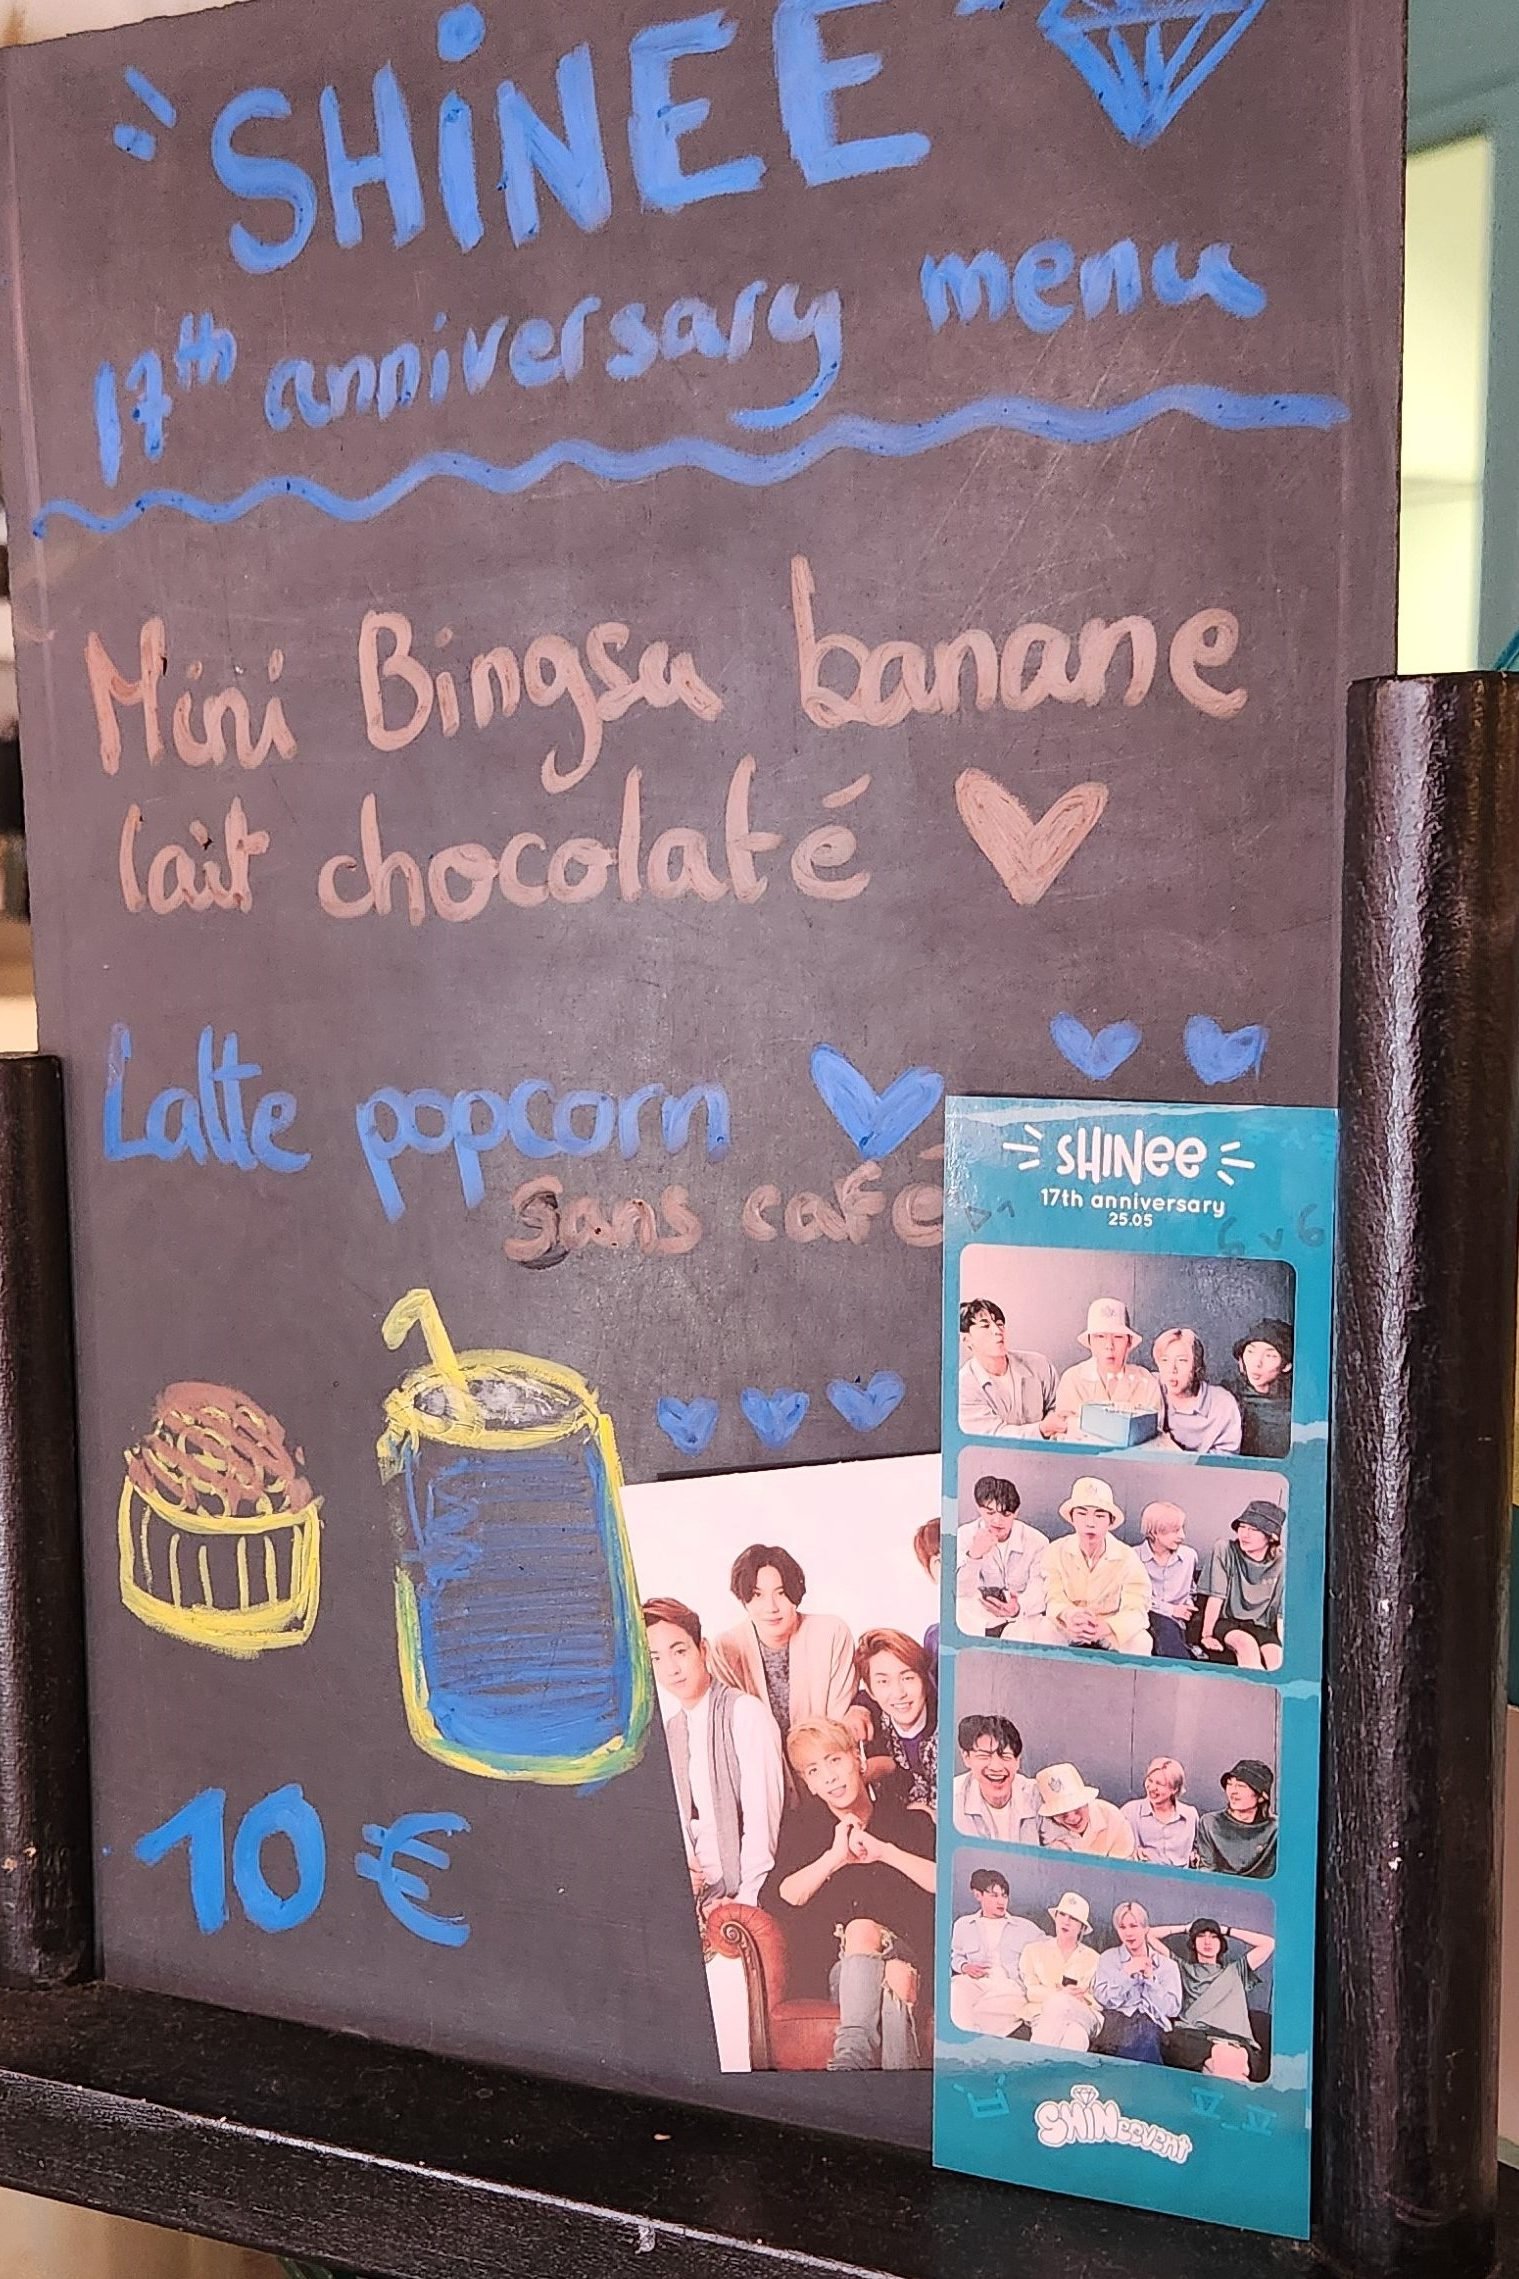 SHiNEE
17th anniversary menu
Mini Bingsu banane
lait chocolaté
Latte popcorn
sans café
10 €
SHINee
17th anniversary
25.05
SHINeevent